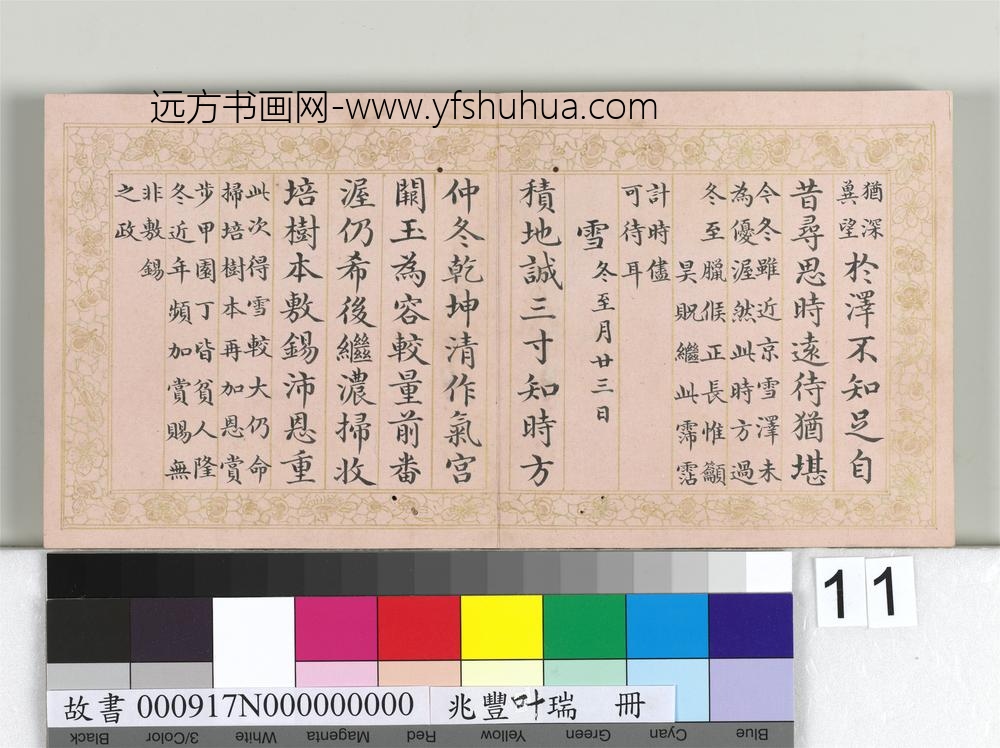 远方书画网-www.yfshuhua.com
猶深
冀望
於澤不知足自
昔尋思時遠待猶堪
今冬雖近京雪澤未
為優渥然此時方過
冬至臘候正長惟籲
昊貺繼此霈霑
計時儘
可待耳
雪冬至月廿三日
積地誠三寸知時方
仲冬乾坤清作氣宮
闕玉為容較量前番
渥仍希後繼濃掃收
培樹本敷錫沛恩重
此次得雪較大仍命
掃培樹本再加恩賞
步甲園丁皆貧人隆
冬近年頻加賞賜無
非敷錫
之政
11
故書 000917N000000000 兆豐叶瑞 冊
Black
3/Color
White
Magenta
Red
Yellow
Green
Cyan
Blue